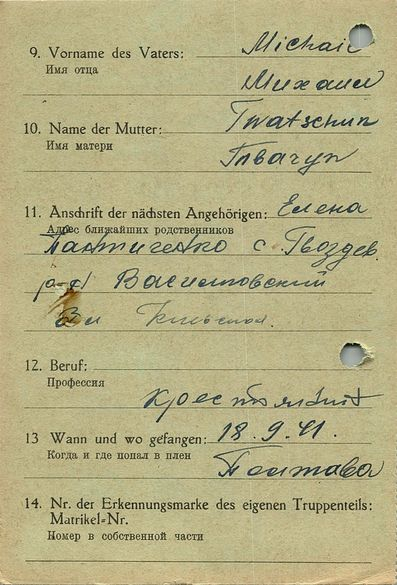 9. Vorname des Vaters: Michail
Имя отца
Михаил
10. Name der Mutter: Twatschun
Имя матери
Твачун
11. Anschrift der nächsten Angehörigen: Елена
Адрес ближайших родственников
с Гвоздев
р-н Василковский
Киевская
12. Beruf:
Профессия
13 Wann und wo gefangen: 18.9.41.
Когда и где попал в плен
Полтава
14. Nr. der Erkennungsmarke des eigenen Truppenteils:
Matrikel-Nr.
Номер в собственной части